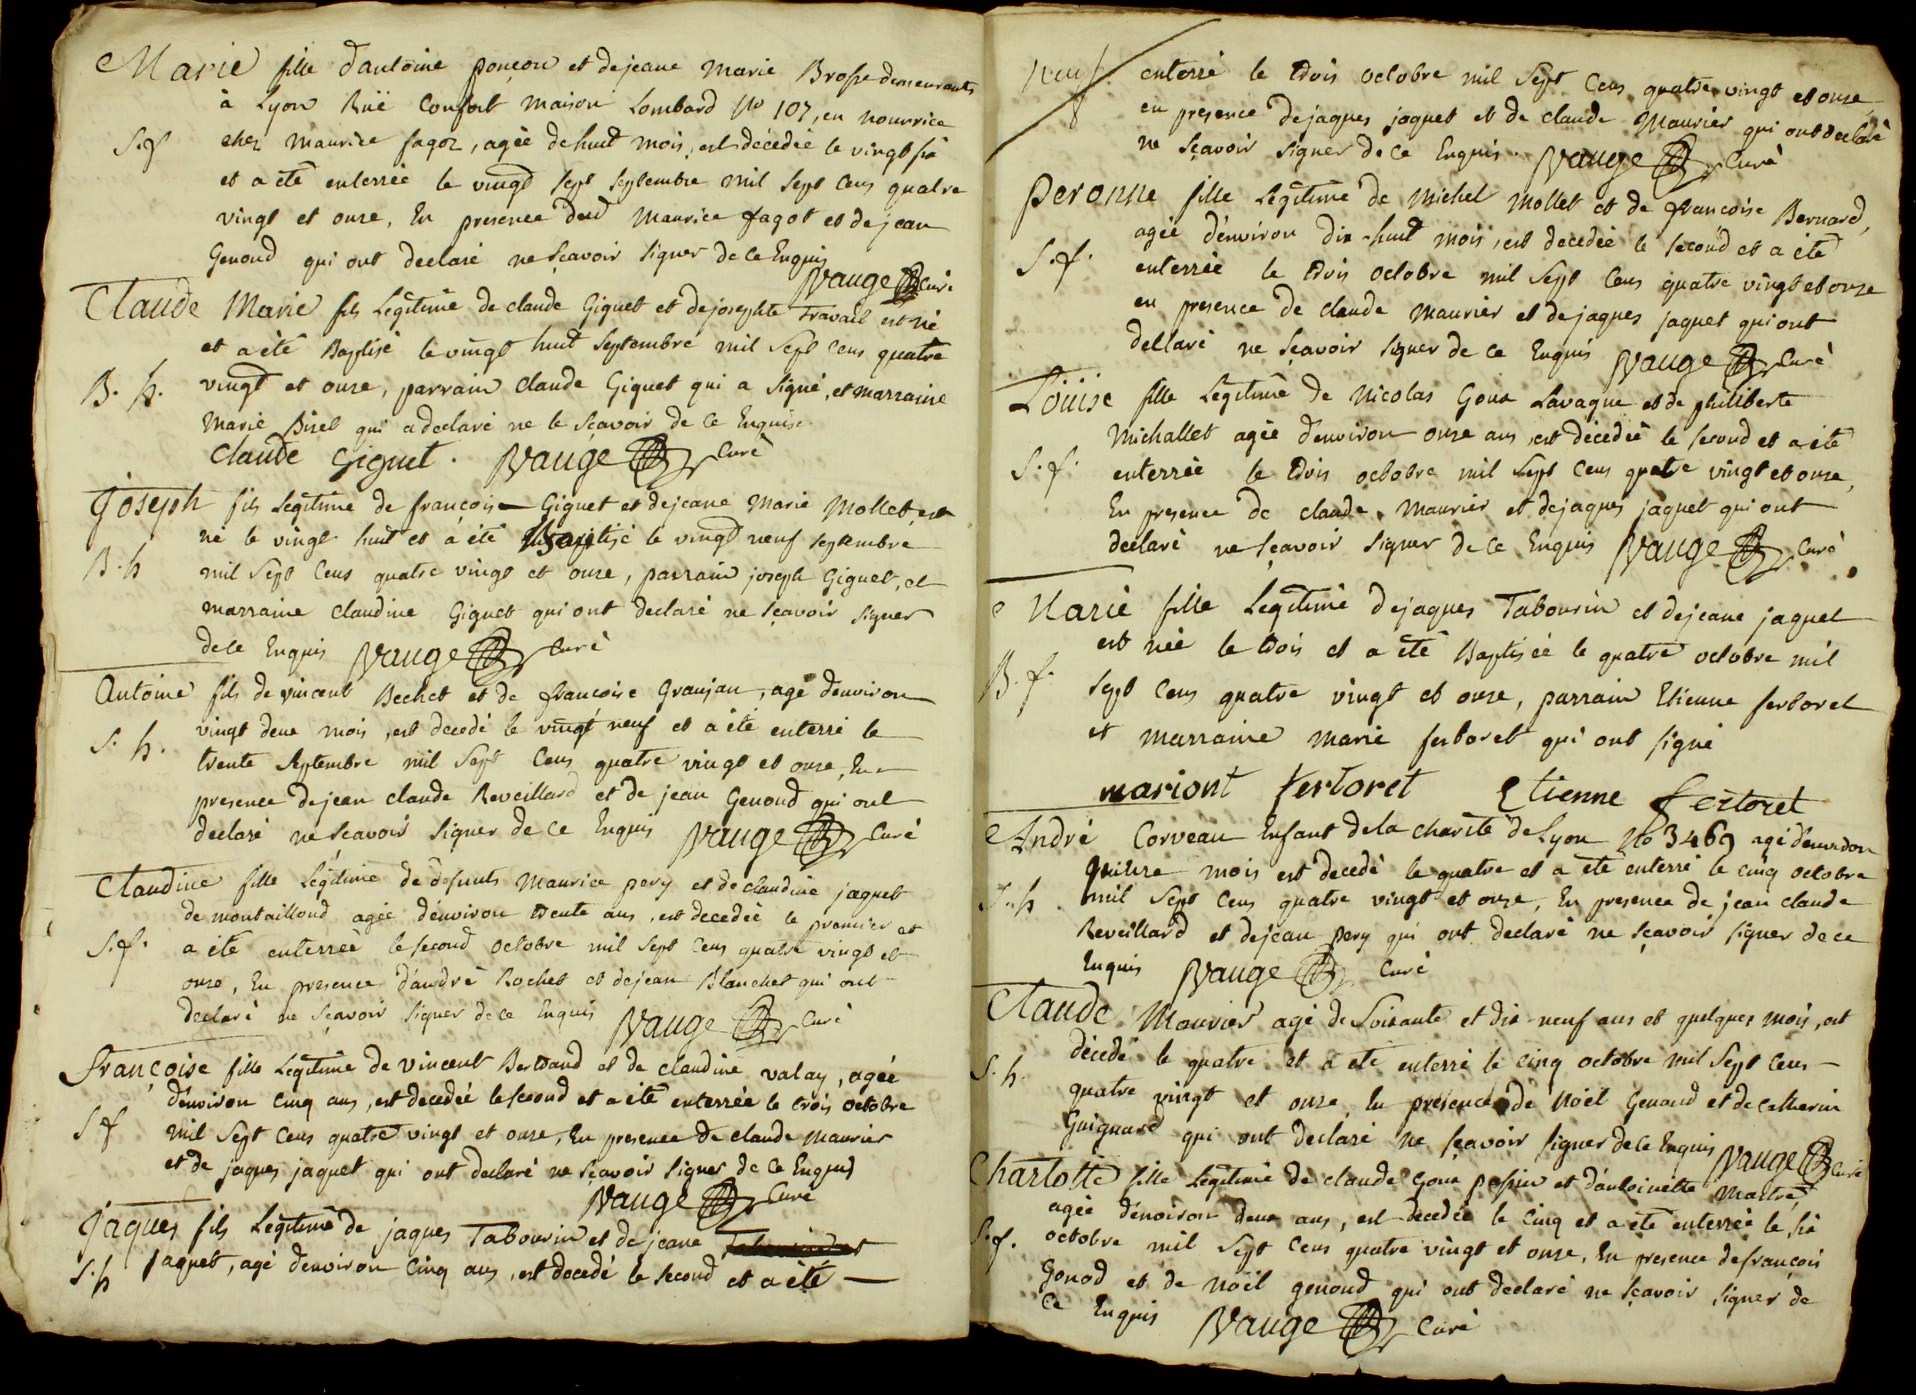 Marie fille d'antoine ponçon et de jeane Marie Brosse demeurants
à Lyon Ruë Confort maison Lombard No 107, en nourrice
S. f chez maurice fagot, agée de huit mois, est décédée le vingt six
et a été enterrée le vingt sept septembre mil sept cens quatre
vingt et onze, En presence dud maurice fagot et de jean
Genoud qui ont declaré ne sçavoir signer de ce Enquis
Vauge Curé
Claude Marie fils Legitime de claude Giguet et de josephte Travail est né
et a été Baptisé le vingt huit septembre mil sept cens quatre
B. h. vingt et onze, parrain claude Giguet qui a signé, et marraine
Marie Bizel qui a declaré ne le sçavoir de ce Enquise
claude Giguet. Vauge Curé
joseph fils Legitime de françois Giguet et de jeane Marie Mollet, est
né le vingt huit et a été Baptisé le vingt neuf septembre
B. h mil sept cens quatre vingt et onze, parrain joseph Giguet, et
marraine claudine Giguet qui ont declaré ne sçavoir signer
de ce Enquis Vauge Curé
Antoine fils de vincent Bechet et de françoise Granjan, agé d'environ
vingt deux mois, est decedé le vingt neuf et a été enterré le
S. h. trente septembre mil sept cens quatre vingt et onze, En
presence de jean claude Reveillard et de jean Genoud qui ont
declaré ne sçavoir signer de ce Enquis Vauge Curé
Claudine fille Légitime de defunts Maurice pery et de claudine jaquet
de montaillond agée d'environ trente ans, est decedée le premier et
S. f. a été enterrée le second octobre mil sept cens quatre vingt et
onze, En presence d'andré Rochet et de jean Blanchet qui ont
declaré ne sçavoir signer de ce Enquis Vauge Curé
Françoise fille Legitime de vincent Bertrand et de claudine valay, agée
d'environ cinq ans, est decedée le second et a été enterrée le trois octobre
S f mil sept cens quatre vingt et onze, En presence de claude Maurier
et de jaques jaquet qui ont declaré ne sçavoir signer de ce Enquis
Vauge Curé
jaques fils Legitime de jaques Tabourin et de jeane
S. h jaquet, agé d'environ cinq ans, est decedé le second et a été
enterré le trois octobre mil sept cens quatre vingt et onze
en presence de jaques jaquet et de claude Maurier qui ont declaré
ne sçavoir signer de ce Enquis. Vauge Curé
peronne fille Légitime de Michel Mollet et de françoise Bernard,
agée d'environ dix-huit mois, est decedée le second et a été
S. f. enterrée le trois octobre mil sept cens quatre vingt et onze
en presence de claude Maurier et de jaques jaquet qui ont
dellaré ne sçavoir signer de ce Enquis Vauge Curé
Löüise fille Legitime de Nicolas Goux Lavaque et de philiberte
Michallet agée d'environ onze ans, est décédée le second et a été
S. f. enterrée le trois octobre mil sept cens quatre vingt et onze,
En presence de claude Maurier et de jaques jaquet qui ont
declaré ne sçavoir signer de ce Enquis Vauge Curé
Marie fille Legitime de jaques Tabourin et de jeane jaquet
est née le trois et a été Baptisée le quatre octobre mil
B. f. sept cens quatre vingt et onze, parrain Etienne fertoret
et marraine marie fertoret qui ont signé
mariont fertoret Etienne fertoret
André Corveau Enfant de la charité de Lyon No 3469 agé d'environ
quinze mois est decedé le quatre et a été enterré le cinq octobre
S. h mil sept cens quatre vingt et onze, En presence de jean claude
Reveillard et de jean pery qui ont declaré ne sçavoir signer de ce
Enquis Vauge Curé
Claude Maurier agé de soixante et dix neuf ans et quelques mois, est
décedé le quatre et a été enterré le cinq octobre mil sept cens
S. h. quatre vingt et onze, En presence de Noël Genoud et de catherin
Guignard qui ont declaré ne sçavoir signer de ce Enquis Vauge Curé
Charlotte fille Légitime de claude Goux et d'antoinette Martré,
agée d'environ deux ans, est decedée le cinq et a été enterrée le six
S. f. octobre mil sept cens quatre vingt et onze, En presence de françois
Gonod et de Noël genoud qui ont declaré ne sçavoir signer de
ce Enquis Vauge Curé